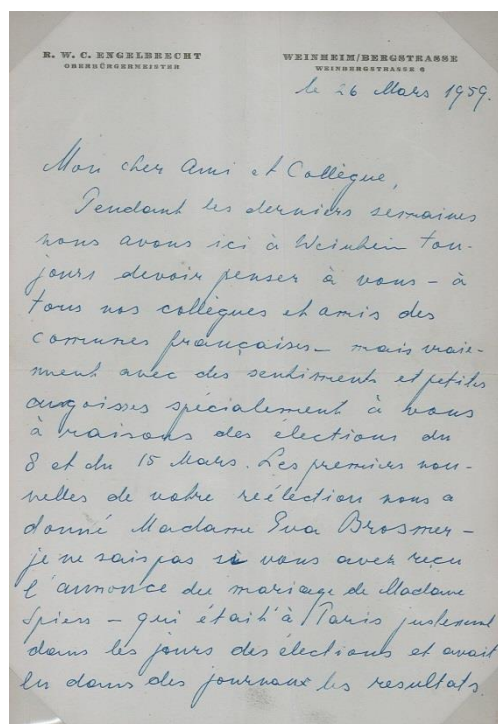 R. W. C. ENGELBRECHT
OBERBÜRGERMEISTER
WEINHEIM/BERGSTRASSE
WEINBERGSTRASSE 6
le 26 Mars 1959.
Mon cher Ami et Collègue,
Pendant les derniers semaines
nous avons ici à Weinheim tou-
jours devoir penser à vous – à
tous nos collègues et amis des
comunes françaises – mais vraie-
ment avec des sentiments et petites
angoisses spécialement à vous
à raisons des élections du
8 et du 15 Mars. Les premiers nou-
velles de votre reélection nous a
donné Madame Eva Brosmer –
je ne sais pas si vous avez reçu
l'annonce du mariage de Madame
Spiess – qui était à Paris justement
dans les jours des élections et avait
lu dans des journaux les resultats.